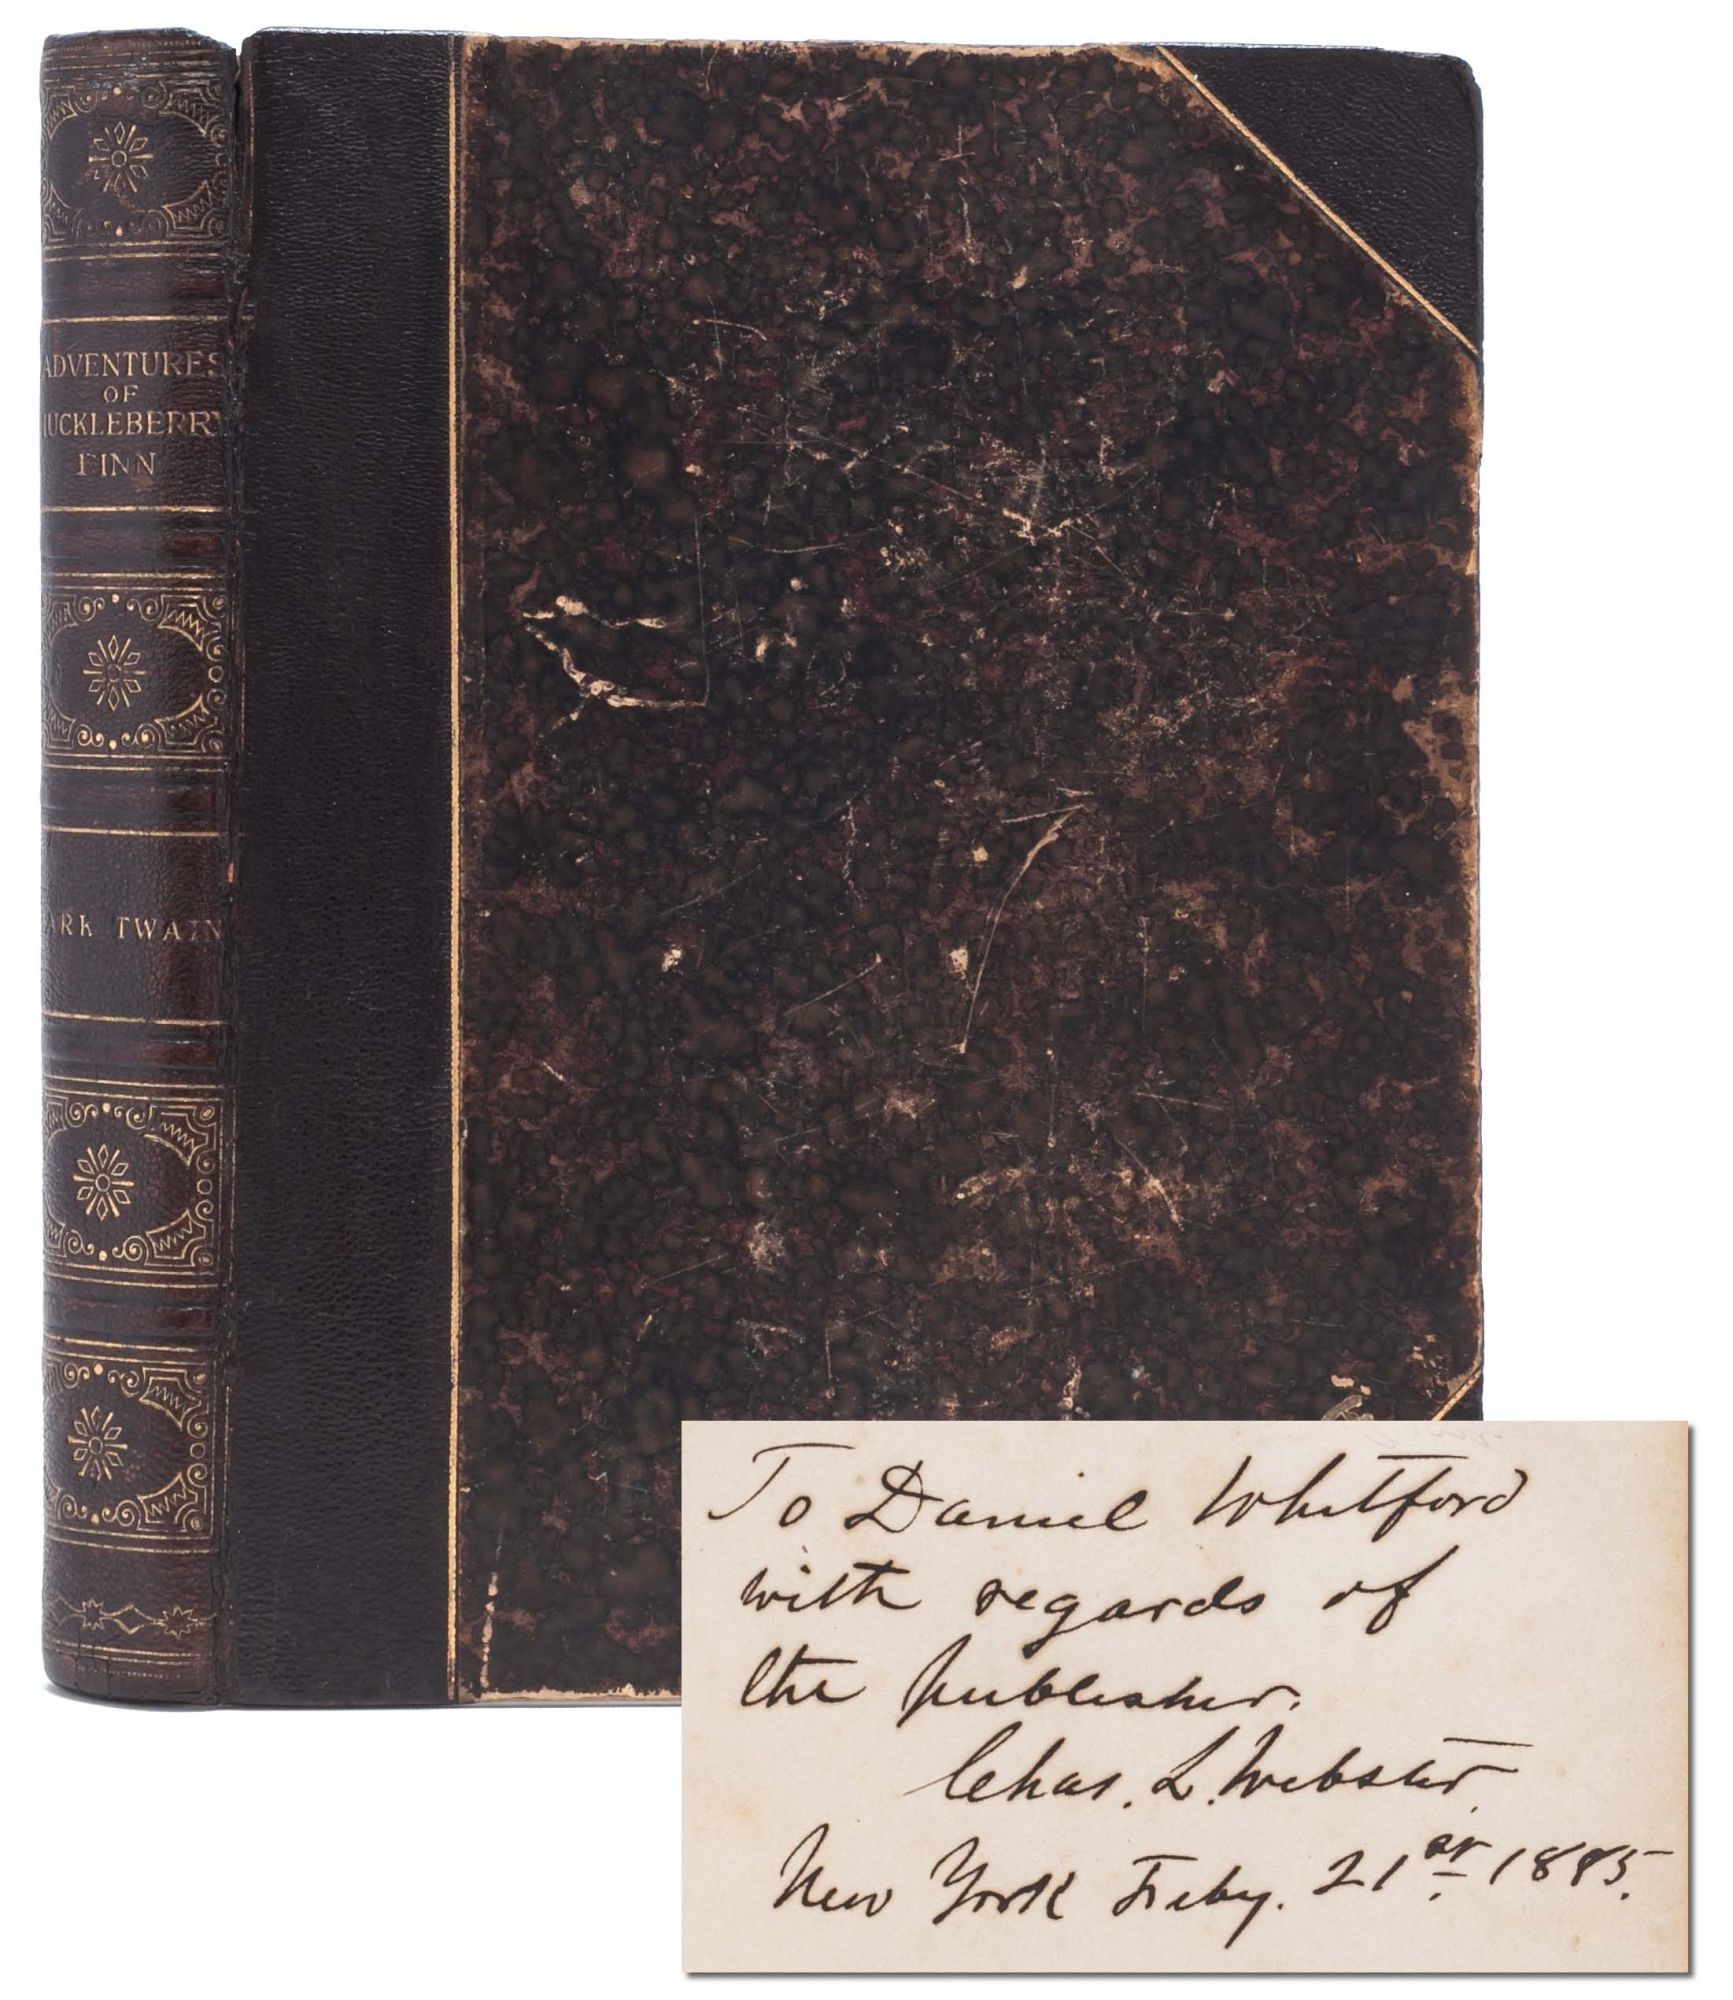 ADVENTURES
OF
HUCKLEBERRY
FINN
ARK TWAIN
To Daniel Whitford
with regards of
the publisher.
Chas. L. Webster.
New York Feby. 21st. 1885.